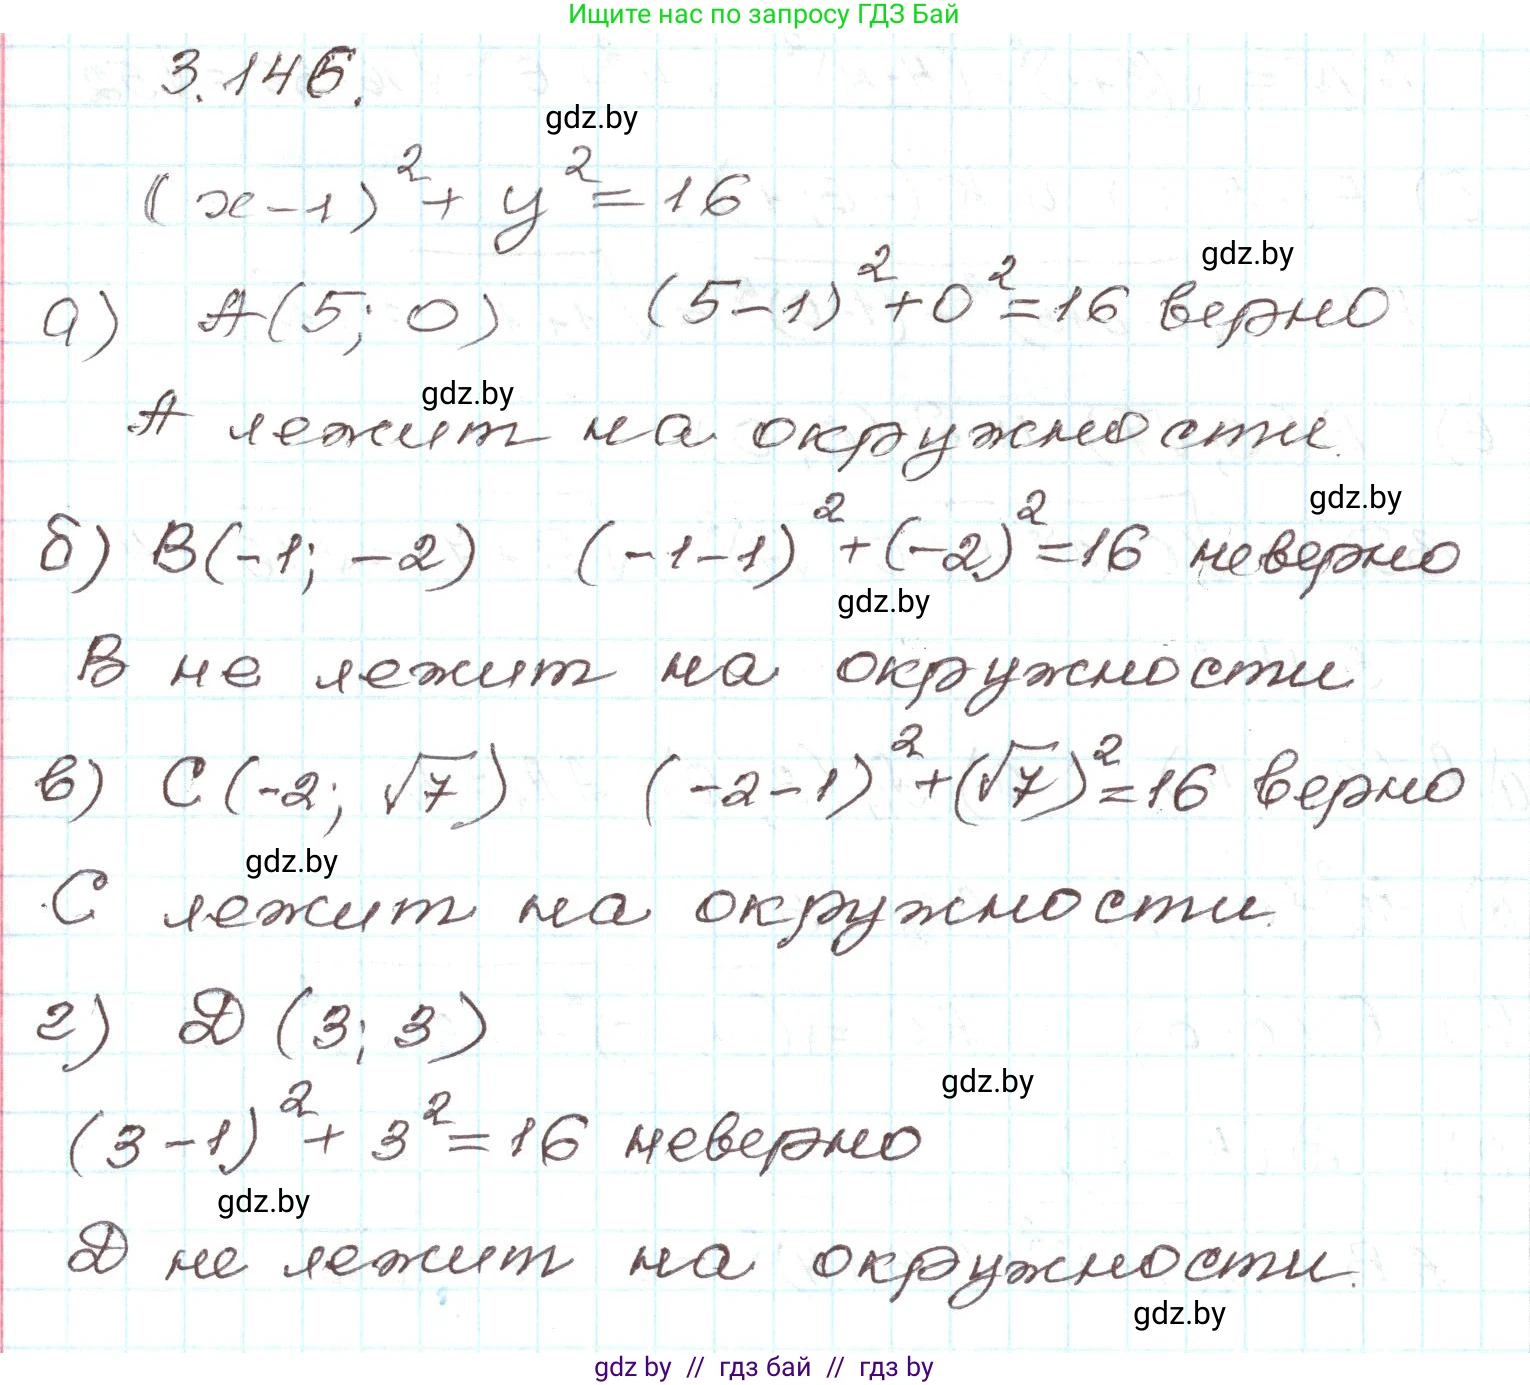 Ищите нас по запросу ГДЗ Бай
3.145.
gdz.by
(x-1)² + y² = 16
gdz.by
а) A(5; 0) (5-1)² + 0² = 16 верно
gdz.by
A лежит на окружности.
gdz.by
б) B(-1; -2) (-1-1)² + (-2)² = 16 неверно
gdz.by
B не лежит на окружности
в) C(-2; √7) (-2-1)² + (√7)² = 16 верно
gdz.by
C лежит на окружности.
г) D (3; 3)
gdz.by
(3-1)² + 3² = 16 неверно
gdz.by
D не лежит на окружности.
gdz.by
gdz by // гдз бай // гдз by